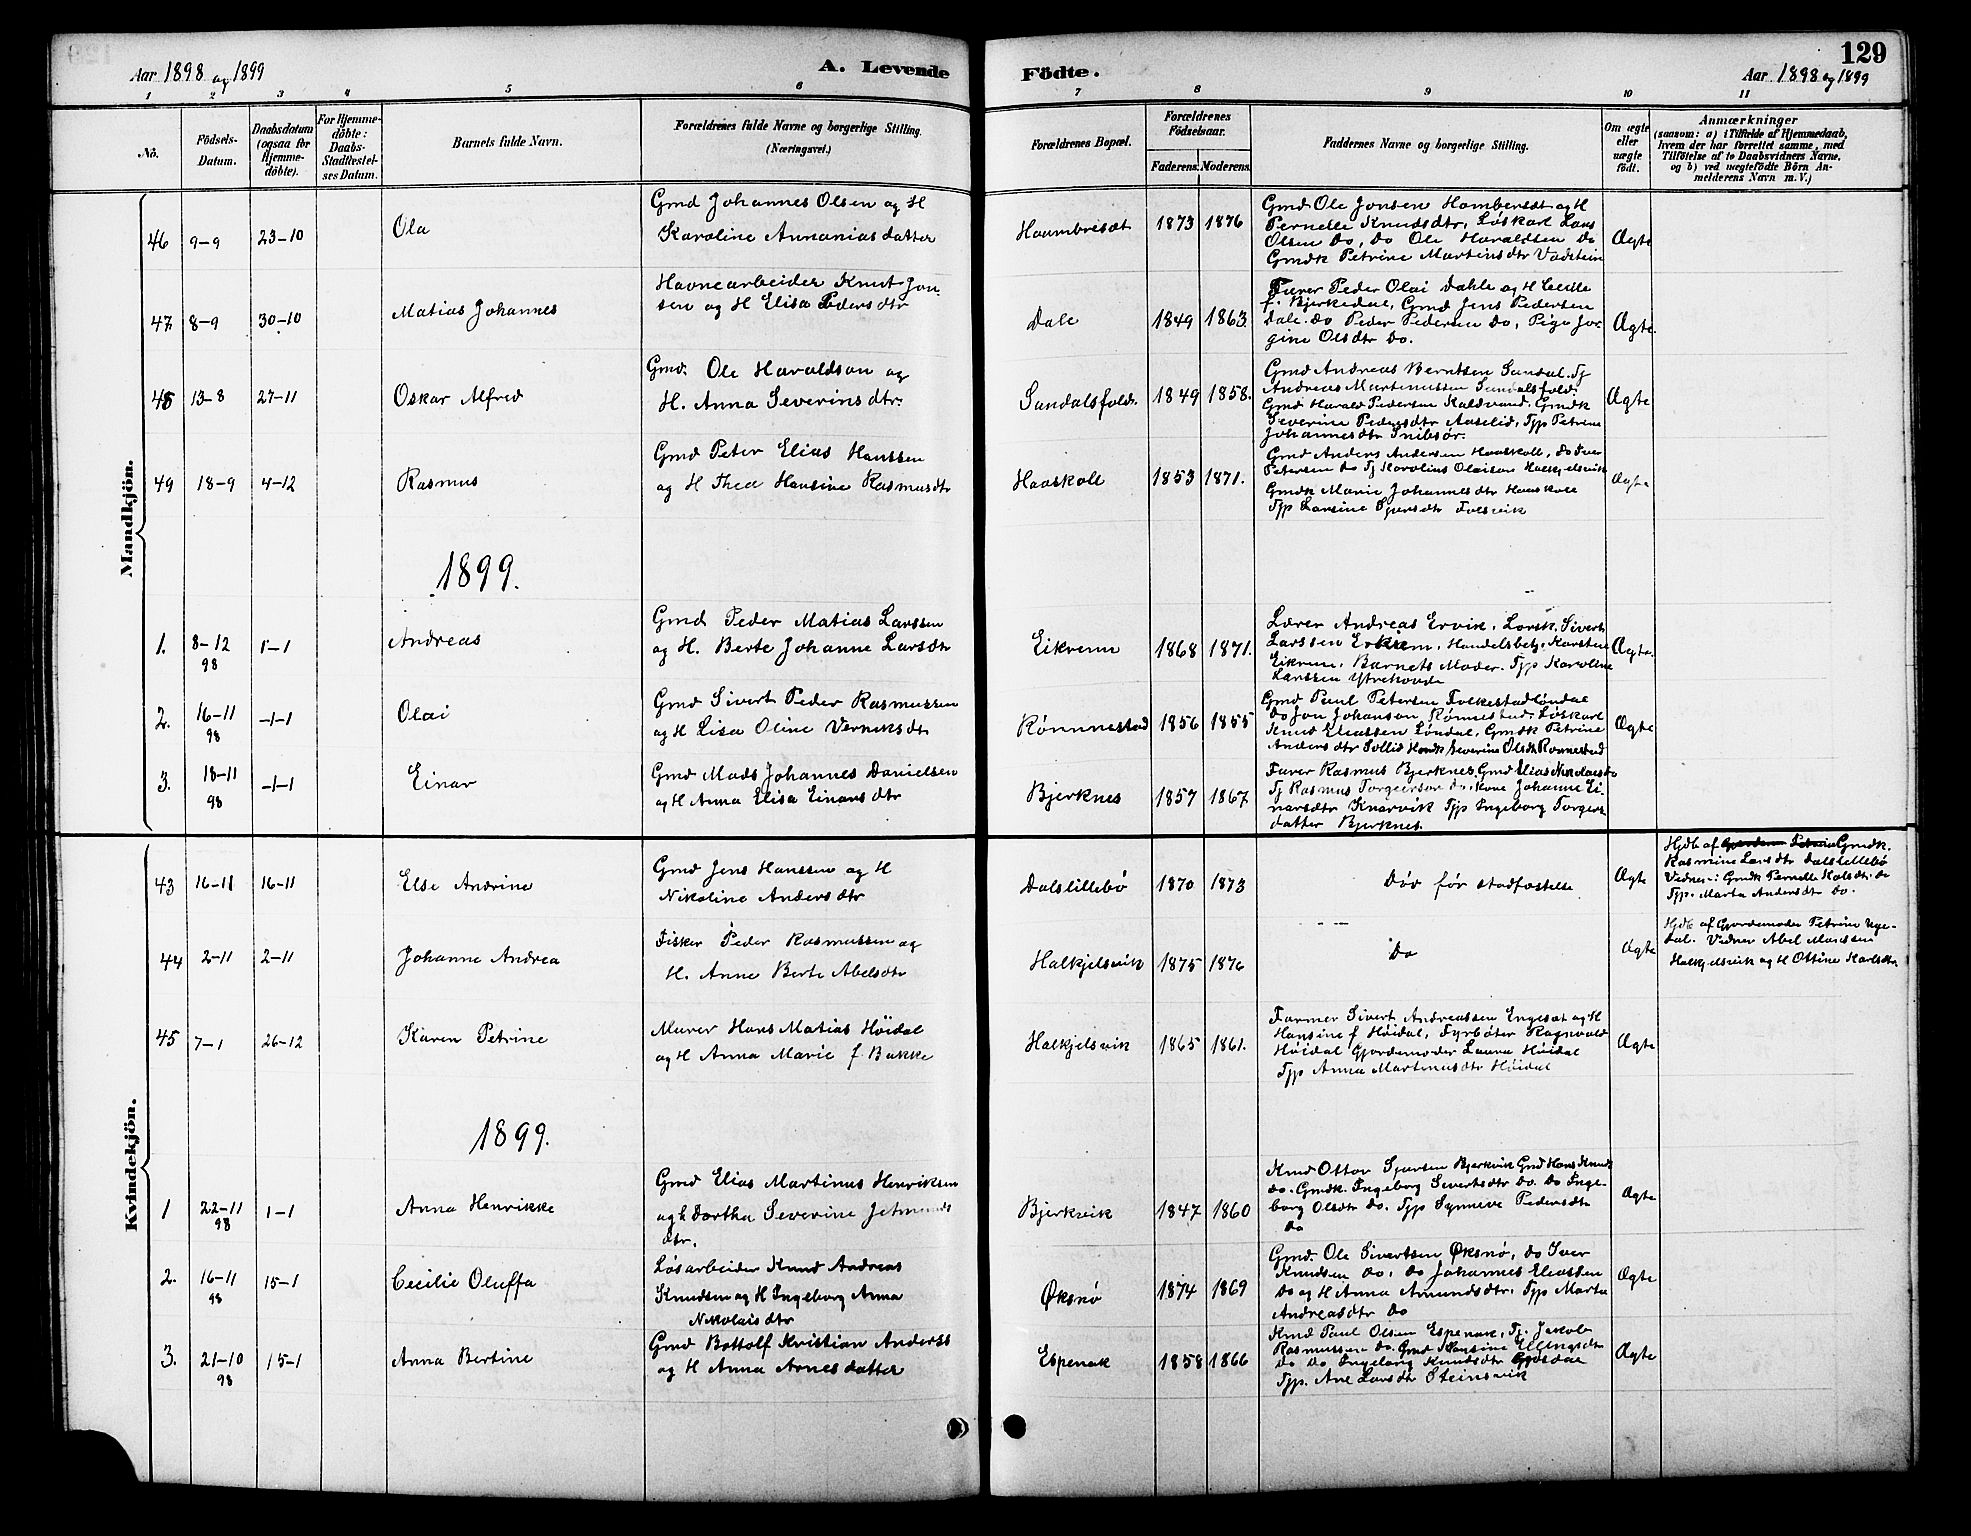 129
Aar 1898 og 1899
A. Levende Födte.
Aar 1898 og 1899
1 2 3 4 5 6 7 8 9 10 11
No.
Födsels-Datum.
Daabsdatum (ogsaa for Hjemme-döbte).
For Hjemme-döbte: Daabs-Stadfæstel-ses Datum.
Barnets fulde Navn.
Forældrenes fulde Navne og borgerlige Stilling.
(Næringsvei.)
Forældrenes Bopæl.
Forældrenes Födselsaar.
Faderens. Moderens.
Faddernes Navne og borgerlige Stilling.
Om ægte eller uægte födt.
Anmærkninger
(saasom: a) i Tilfælde af Hjemmedaab,
hvem der har forrettet samme, med
Tilföielse af to Daabsvidners Navne,
og b) ved uægtefödte Börn An-
melderens Navn m. V.)
Mandkjön.
46 9-9 23-10 Ola
Gmd Johannes Olsen og H
Karoline Annanias datter
Haambresæt 1873 1876
Gmd Ole Jonsen Hambersæt og H
Pernelle Knudsdtr, Løskarl Lars
Olsen do, do Ole Haraldsen do
Gmdk Petrine Martinsdtr Vadstein
Ægte
47 8-9 30-10 Matias Johannes
Havnearbeider Knut Jon-
sen og H Elisa Pedersdtr
Dale 1849 1863.
Furer Peder Olai Dahle og H
f. Bjerkedal, Gmd Jens Pedersen
Dale. do Peder Pedersen do, Pige Jor-
gine Olsdtr do.
Ægte.
48 13-8 27-11 Oskar Alfred
Gmd. Ole Haraldson og
H. Anna Severinsdtr.
Sundalsfold. 1849 1858.
Gmd Andreas Berntsen Sundal. Tj
Andreas Martinussen Sundalsfold.
Gmd Harald Pedersen Kaldvand. Gmdk
Severine Pedersdtr Aaselid, Tjp Petrine
Johannesdtr Snibsør.
Ægte
49 18-9 4-12 Rasmus
Gmd Peter Elias Hanssen
og H Thea Hansine Rasmusdtr
Haaskole 1853 1871.
Gmd Anders Andersen Haaskole, do Iver
Petersen do Tj Karolius Olaisen Halkjelsvik
Gmdk Marie Johannesdtr Haaskole
Tjp Larsine Sjursdtr Folsvik
Ægte
1899.
1. 8-12 98 1-1 Andreas
Gmd Peder Matias Larssen
og H. Berte Johanne Larsdtr
Eikrem 1868 1871.
Lærer Andreas Ervik, Lørsk. Sivert
Larssen Eikrem, Handelsbetj. Karsten
Eikrem, Barnets Moder. Tjp Karoline
Larssen Ytrehovde
Ægte.
2. 16-11 98 -1-1 Olai
Gmd Sivert Peder Rasmussen
og H Lisa Oline Verniksdtr
Rønnnestad 1856 1855
Gmd Paul Petersen Folkestadlöndal
do Jon Johanson Rönnestad, Løskarl
Knud Eliassen Löndal, Gmdk Petrine
Andersdtr Sollid Severine Olsdtr Rønnestad
Ægte
3. 18-11 98 -1-1 Einar
Gmd Mads Johannes Danielsen
og H Anna Elisa Einarsdtr
Bjerknes 1857 1867
Furer Rasmus Bjerknes, Gmd Elias Nikolais do
Tj Rasmus Torgerson do. Kone Johanne Ei-
narsdtr Knarvik Tjp Ingeborg Torgers
datter Bjerknes.
Kvindekjön.
43 16-11 16-11 Else Andrine
Gmd Jens Hanssen og H
Nikoline Andersdtr
Dalslillebø 1870 1873
Død før stadfæstelse
Ægte
Hjdb af Gmdk.
Rasmine Larsdtr Dalslillebø
Vidner: Gmdk Pernelle Kolsdtr do
Tjp. Marta Andersdtr do.
44 2-11 2-11 Johanne Andrea
Fisker Peder Rasmussen og
H. Anne Berte Abelsdtr
Halkjelsvik 1875 1876
Do
Ægte
Hjdb af Gjordemoder Petrine Mye-
dal. Vidner Abel Monssen
Halkjelsvik og H Ottine Karlsdtr
45 7-1 26-12 Karen Petrine
Murer Hans Matias Höidal
og H Anna Marie f Bakke
Halkjelsvik 1865 1861.
Farmer Sivert Andreassen Engeset og H
Hansine f Höidal, Fyrbøter Ragnvald
Höidal Gjordemoder Laura Höidal
Tjp Anna Martinusdtr Höidal
Ægte
1899.
1 22-11 98 1-1 Anna Henrikke
Gmd Elias Martinus Henriksen
og H Dorthea Severine Jetmunds
dtr.
Bjerkvik 1847 1860
Kmd Ottar Sjursen Bjerkvik Gmd Hans Knuds
do. Gmdk. Ingeborg Sivertsdtr do. do Inge-
borg Olsdtr do. Tjp Synneve Pedersdtr
do
Ægte
2. 16-11 98 15-1 Cecilie Oluffa
Løsarbeider Knud Andreas
Knudsen og H Ingeborg Anna
Nikolaisdtr
Øksnø 1874 1869
Gmd. Ole Sivertsen Øksnø, do Iver
Knudsen do, do Johannes Eliassen
do og H Anna Amundsdtr. Tjp Marta
Andreasdtr do
Ægte
3. 21-10 98 15-1 Anna Bertine
Gmd Bottolf Kristian Anderss
og H Anna Arnesdatter
Espenak 1858 1866
Kmd Paul Olsen Espenak, Tj. Jakob
Rasmussen do. Gmd Hansine Ellingsdtr
do do Ingeborg Knudsdtr
Tjp. Ane Larsdtr Steinsvik
Ægte